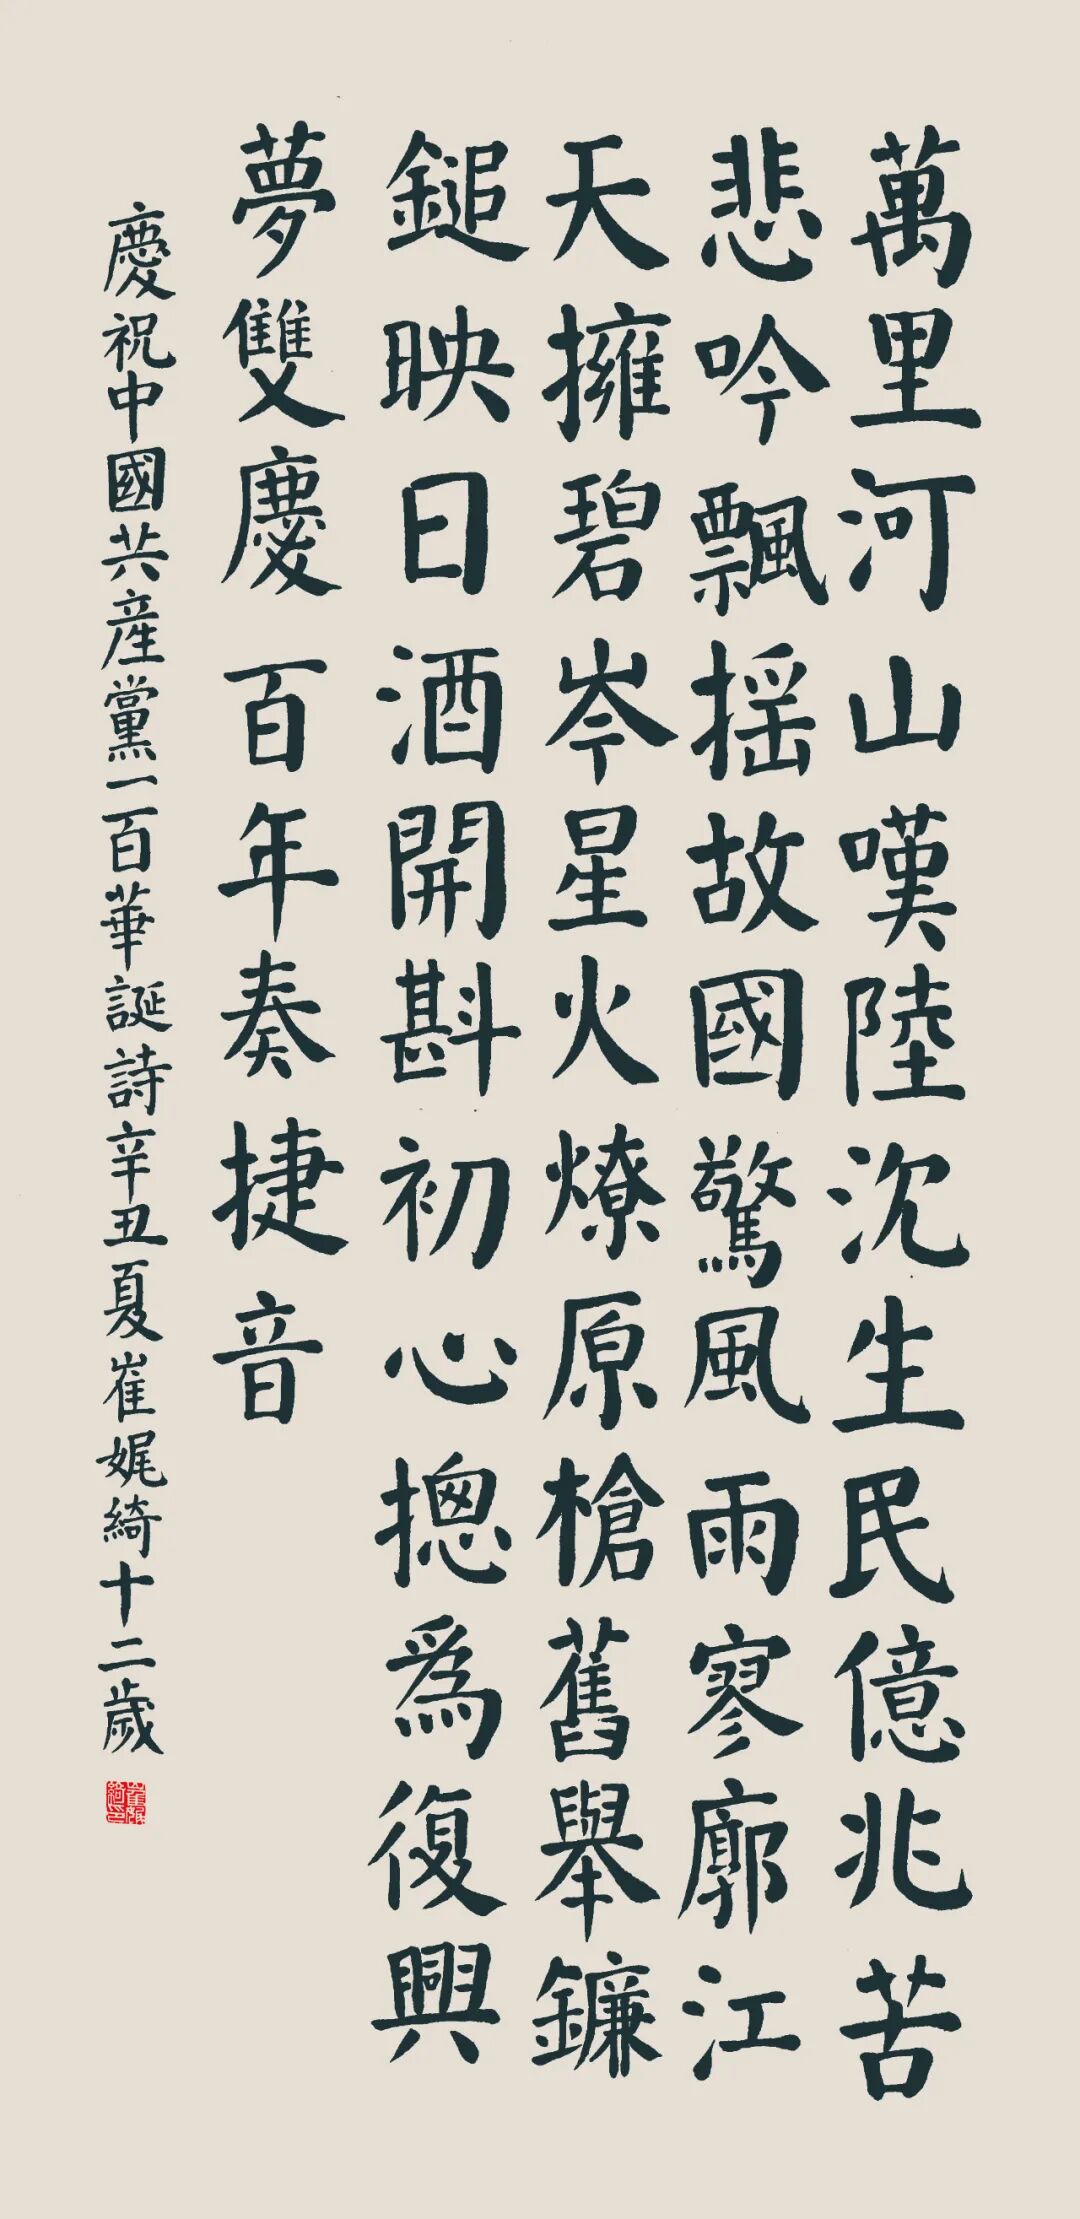 萬里河山嘆陸沈生民億兆苦
悲吟飄摇故國驚風雨寥廓江
天擁碧岑星火燎原槍舊舉鐮
鎚映日酒開斟初心摠爲復興
夢雙慶百年奏捷音
慶祝中國共産黨一百華誕詩辛丑夏崔娓綺十二歲